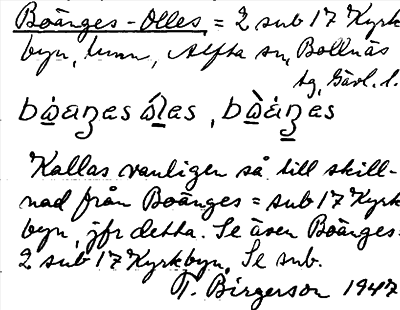 Boänges-Olles = 2 sub 17 Kyrk
byn, hmn, Alfta sn, Bollnäs
tg, Gävl. l.
Kallas vanligen så till skill-
nad från Boänges = sub 17 Kyrk
byn, jfr detta. Se även Boänges:
2 sub 17 Kyrkbyn. Se sub.
T. Birgerson 1947